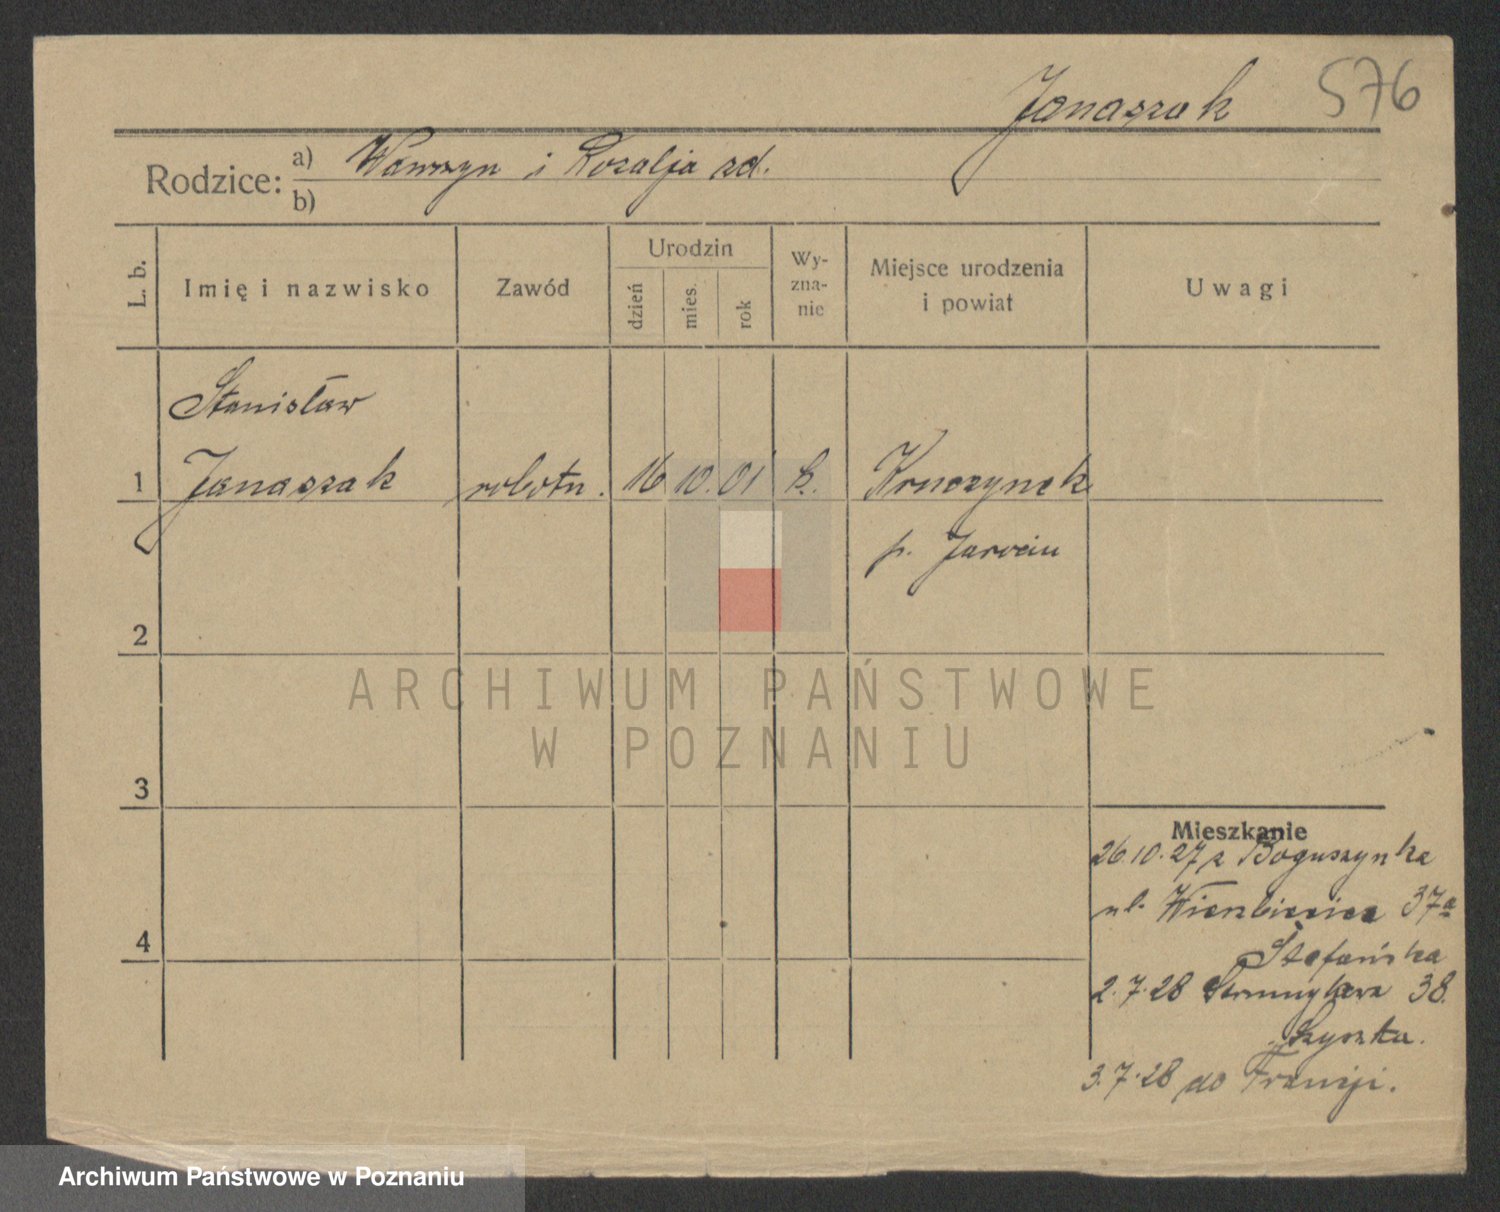 Janaszak 576
Rodzice: a) Wawrzyn i Rozalja zd.
b)
L. b.
Imię i nazwisko
Zawód
Urodzin
dzień
mies.
rok
Wy-
zna-
nie
Miejsce urodzenia
i powiat
Uwagi
Stanisław
1 Janaszak robotn. 16 10. 01 k. Kruczynek
p. Jarocin
2
3
4
Mieszkanie
26.10.27 z Boguszynka
ul. Wierzbięcice 37a
Stefańska
2.7.28 38.
Szyszka.
3.7.28 do Francji.
ARCHIWUM PAŃSTWOWE
W POZNANIU
Archiwum Państwowe w Poznaniu